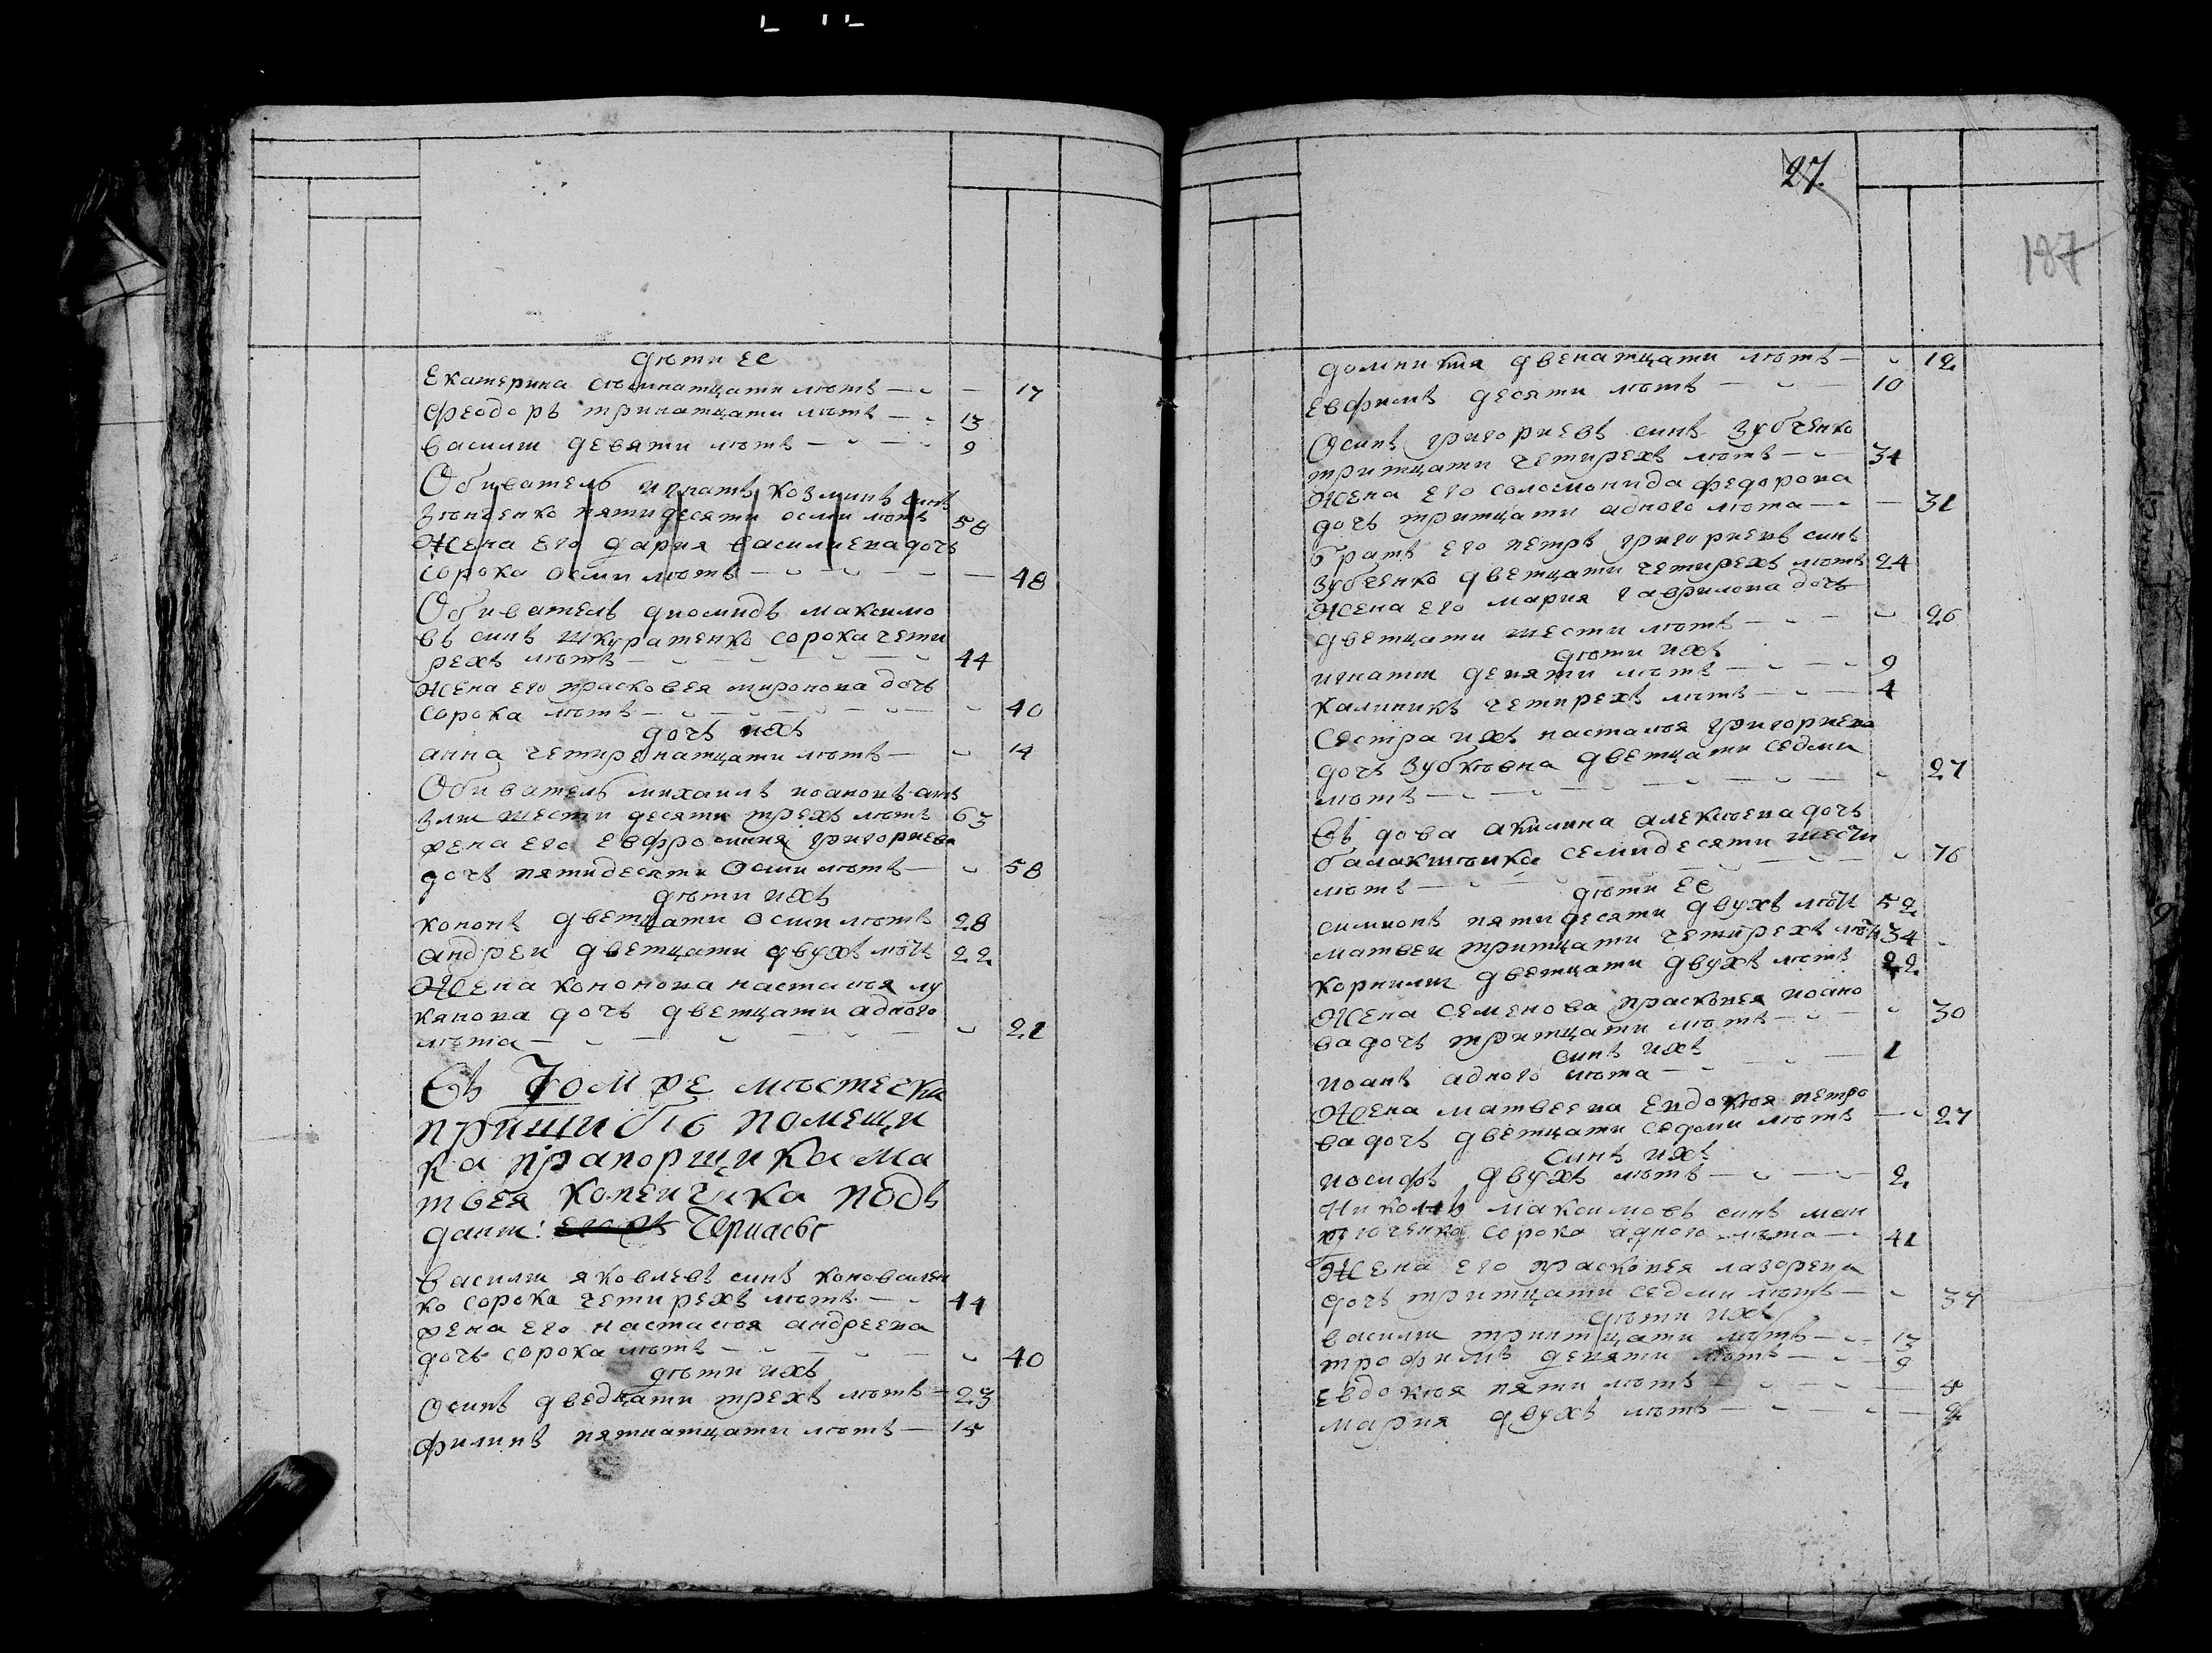 дѣти ее
Екатерина семинатцати лѣтъ — 17
Феодоръ тринатцати лѣтъ — 13
василиі девяти лѣтъ — 9
Обиватель игнатъ козминъ синъ
Зѣнченко пятидесяти осми лѣтъ 58
Жена его дария василиева дочь
сорока осми лѣтъ — 48
Обиватель диомидъ максимо
въ синъ шкуратенко сорока чети
рехъ лѣтъ — 44
Жена его прасковея миронова дочь
сорока лѣтъ — 40
дочь ихъ
анна четиренатцати лѣтъ — 14
Обиватель михаилъ иоановъ синъ
шестидесяти трехъ лѣтъ 63
жена его евфросиния григориева
дочь пятидесяти осми лѣтъ — 58
дѣти ихъ
кононъ дветцати осми лѣтъ 28
андреи дветцати двухъ лѣтъ 22
Жена кононова настасѣя лу
кянова дочь дветцати адного
лѣта — 21
Въ Томже мѣстечку
пришибѣ помещи
ка прапорщика ма
твея копеичика подъ
дани:
Василиі яковлевъ синъ коновален
ко сорока четирехъ лѣтъ — 44
жена его настасѣя андреева
дочь сорока лѣтъ — 40
дѣти ихъ
Осипъ дведцати трехъ лѣтъ — 23
филипъ пятнатцати лѣтъ — 15
27
187
домникия двенатцати лѣтъ — 12
Евфимъ десяти лѣтъ — 10
Осипъ григориевъ синъ зубченко
тритцати четирехъ лѣтъ — 34
Жена его соломонида федорова
дочь тритцати адного лѣта — 31
братъ его петръ григориевъ синъ
зубченко дветцати четирехъ лѣтъ 24
Жена его мария гаврилова дочь
дветцати шести лѣтъ — 26
дѣти ихъ
игнатиі девяти лѣтъ — 9
калиникъ четирехъ лѣтъ — 4
Сестра ихъ настасѣя григориева
дочь зубковна дветцати седми
лѣтъ — 27
Въдова акилина алексѣева дочь
семидесяти шести
лѣтъ — 76
дѣти ее
симионъ пятидесяти двухъ лѣтъ 52
матвеи тритцати четирехъ лѣтъ 34
корнилиі дветцати двухъ лѣтъ 22
Жена семенова прасковея иоано
ва дочь тритцати лѣтъ — 30
синъ ихъ
иоанъ адного лѣта — 1
Жена матвеева евдокѣя петро
ва дочь дветцати седми лѣтъ — 27
синъ ихъ
иосифъ двухъ лѣтъ — 2
Николаи максимовъ синъ
сорока адного лѣта — 41
Жена его прасковея лазорева
дочь тритцати седми лѣтъ — 37
дѣти ихъ
василиі тринтцати лѣтъ — 13
трофимъ девяти лѣтъ — 9
Евдокѣя пяти лѣтъ — 5
мария двухъ лѣтъ — 2